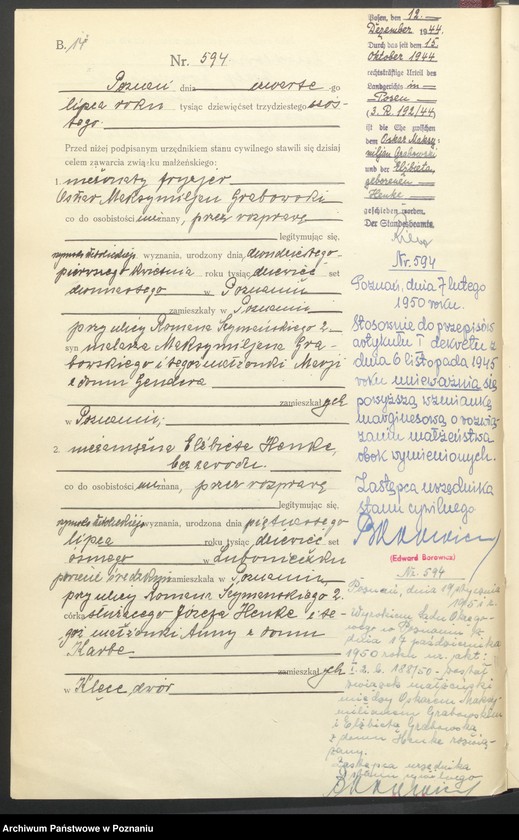 B. 14
Nr. 594
Poznań dnia czwarte -go
lipca roku tysiąc dziewięćset trzydziestego ós-
tego.
Przed niżej podpisanym urzędnikiem stanu cywilnego stawili się dzisiaj
celem zawarcia związku małżeńskiego:
1. nieżonaty fryzjer
Oskar Maksymiljan Grabowski
co do osobistości znany, przez rozprawę
legitymując się,
wyznania, urodzony dnia dwudziestego-
pierwszego kwietnia roku tysiąc dziewięć set
dwunastego w Poznaniu
zamieszkały w Poznaniu
przy ulicy Romana Szymańskiego 2
syn malarza Maksymiljana Gra-
bowskiego i tegoż małżonki Marji
z domu Gendera
zamieszkał ych
w Poznaniu;
2. niezamężna Elżbieta Henke,
bez zawodu.
co do osobistości znana, przez rozprawę
legitymując się,
wyznania, urodzona dnia piętnastego
lipca roku tysiąc dziewięć set
ósmego w Luboniczku
powiat średzki zamieszkała w Poznaniu
przy ulicy Romana Szymańskiego 2.
córka służącego Józefa Henke i te-
goż małżonki Anny z domu
Karbe
zamieszkał ych
w Klęce dwór
Posen, den 12.
Dezember 1944.
Durch das seit dem 15.
Oktober 1944
rechtskräftige Urteil des
Landgerichts in
Posen
(3. R. 192/44)
ist die Ehe zwischen
dem Oskar Maksy-
miljan Grabowski
und der Elżbieta,
geborenen
Henke
geschieden worden.
Der Standesbeamte.
Nr. 594
Poznań, dnia 7 lutego
1950 roku.
Stosownie do przepisów
artykułu I dekretu z
dnia 6 listopada 1945
roku unieważnia się
powyższą wzmiankę
marginesową o rozwią-
zaniu małżeństwa
obok wymienionych.
Zastępca urzędnika
stanu cywilnego
(Edward Borowicz)
Nr. 594
Poznań, dnia 19 stycznia
1951 r.
Wyrokiem Sądu Okręgo-
wego w Poznaniu z
dnia 17 października
1950 roku nr. akt:
I. 2. C. 188/50 został
związek małżeński
między Oskarem Maksy-
miljanem Grabowskim
i Elżbietą Grabowską
z domu Henke rozwią-
zany.
Zastępca urzędnika
stanu cywilnego
Archiwum Państwowe w Poznaniu